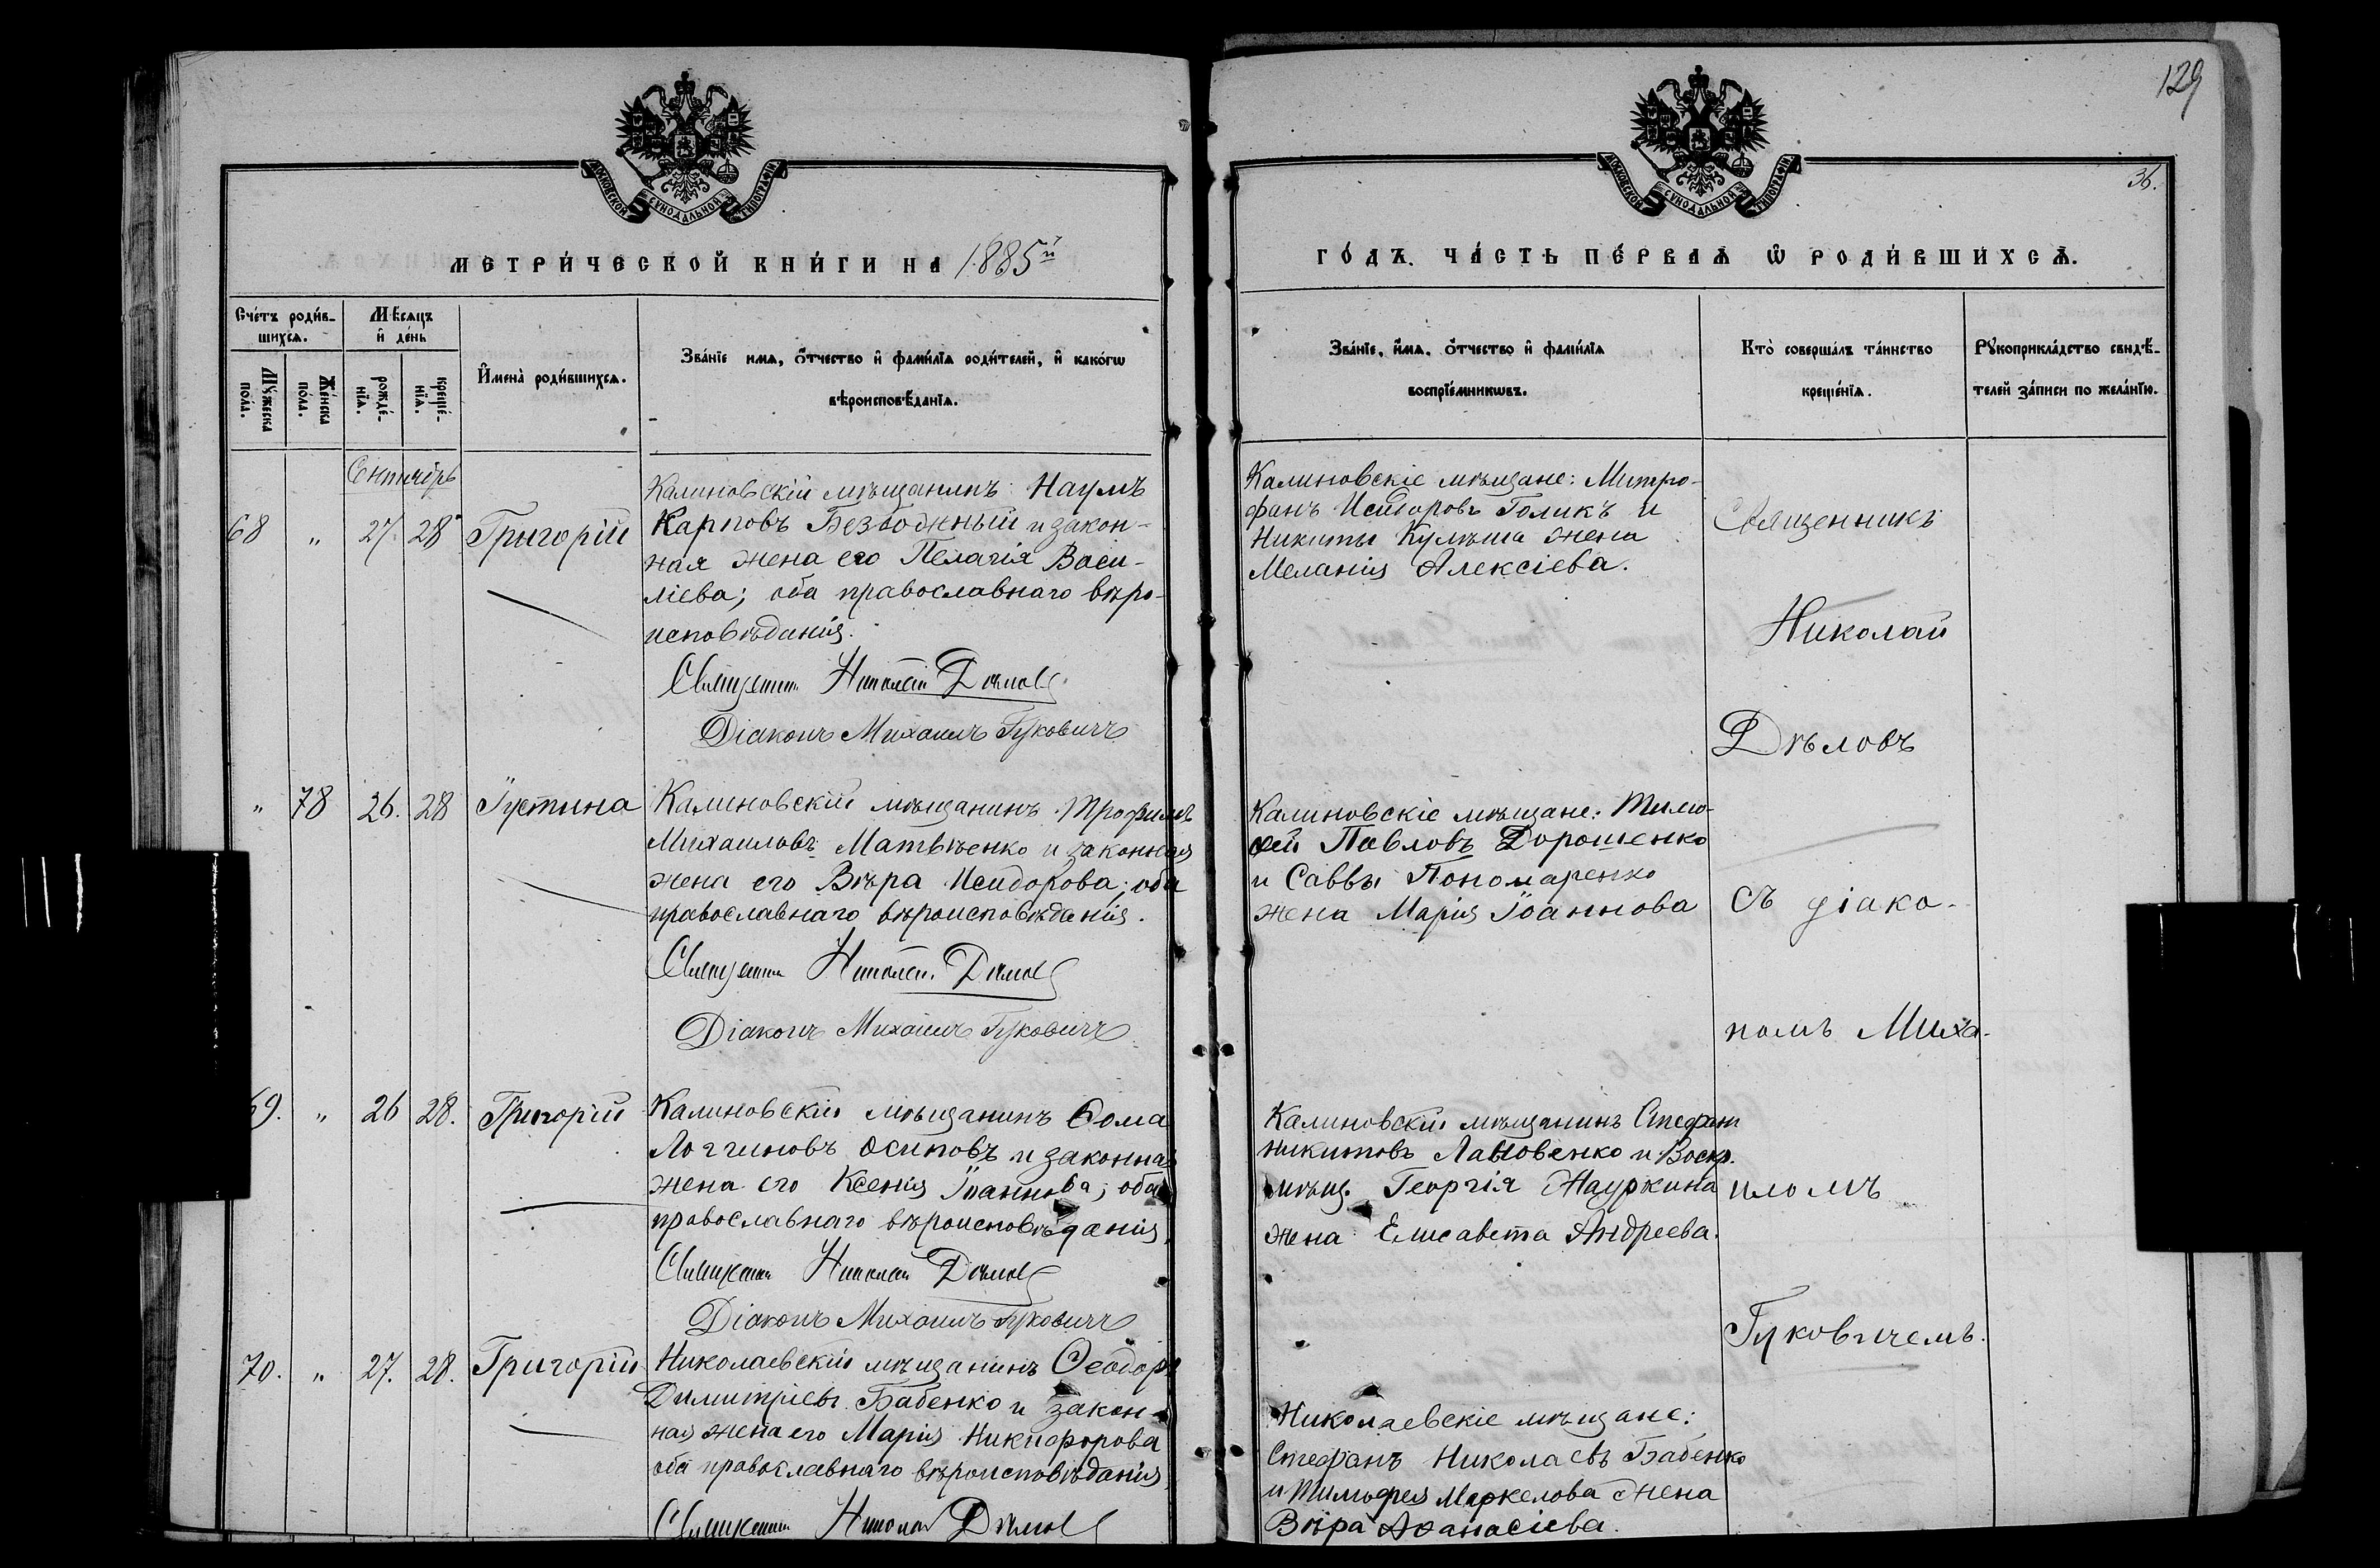 129
36.
МОСКОВСКОЙ СѴНОДАЛЬНОЙ ТИПОГРАФІИ
МОСКОВСКОЙ СѴНОДАЛЬНОЙ ТИПОГРАФІИ
МЕТРИ́ЧЕСКОЙ КНИ́ГИ НА 1885й
ГО́ДЪ. ЧА́СТЬ ПЕ́РВАѦ Ѡ РОДИ́ВШИХСѦ.
Сче́тъ роди́в-
шихсѧ.
Мꙋ́жеска
по́ла.
Же́нска
по́ла.
Мѣ́сѧцъ
и҆ де́нь
рожде́-
нїѧ.
креще́-
нїѧ.
И҆мена̀ роди́вшихсѧ.
Зва́нїе имѧ, ѻ҆́тчество и҆ фами́лїѧ роди́телей, и҆ како́гѡ
вѣроисповѣ́данїѧ.
Зва́нїе, и҆́мѧ, ѻ҆́тчество и҆ фами́лїѧ
воспрїе́мникѡвъ.
Кто̀ соверша́лъ та́инство
креще́нїѧ.
Рꙋкоприкла́дство свидѣ́-
телей за́писи по жела́нїю.
Сентябрь
68 „ 27. 28 Григорій
Калиновскій мѣщанинъ Наумъ
Карповъ Безводный и закон-
ная жена его Пелагія Васи-
ліева; оба православнаго вѣро-
исповѣданія.
Священникъ Николай Дѣловъ
Діаконъ Михаилъ Гуковичъ
Калиновскіе мѣщане: Митро-
фанъ Исидоровъ Голикъ и
Никиты Кулѣша жена
Меланія Алексіева.
„ 78 26. 28 Іустина
Калиновскій мѣщанинъ Трофимъ
Михаиловъ Матвѣенко и законная
жена его Вѣра Исидорова; оба
православнаго вѣроисповѣданія.
Священникъ Николай Дѣловъ
Діаконъ Михаилъ Гуковичъ
Калиновскіе мѣщане: Тимо-
фей Павловъ Дорошенко
и Саввы Пономаренко
жена Марія Іоаннова
69. „ 26 28. Григорій
Калиновскій мѣщанинъ Ѳома
Логгиновъ Осиповъ и законная
жена его Ксенія Іоаннова; оба
православнаго вѣроисповѣданія,
Священникъ Николай Дѣловъ
Діаконъ Михаилъ Гуковичъ
Калиновскій мѣщанинъ Стефанъ
Никитовъ и Воскр.
мѣщ. Георгія жена Елисавета Андреева.
70. „ 27. 28. Григорій
Николаевскій мѣщанинъ Ѳеодоръ
Димитріевъ Бабенко и закон-
ная жена его Марія Никифорова
оба православнаго вѣроисповѣданія,
Священникъ Николай Дѣловъ
Николаевскіе мѣщане:
Стефанъ Николаевъ Бабенко
и Тимофея Маркелова жена
Вѣра Аѳанасіева.
Священникъ
Николай
Дѣловъ
съ діако-
номъ Миха-
иломъ
Гуковичемъ.